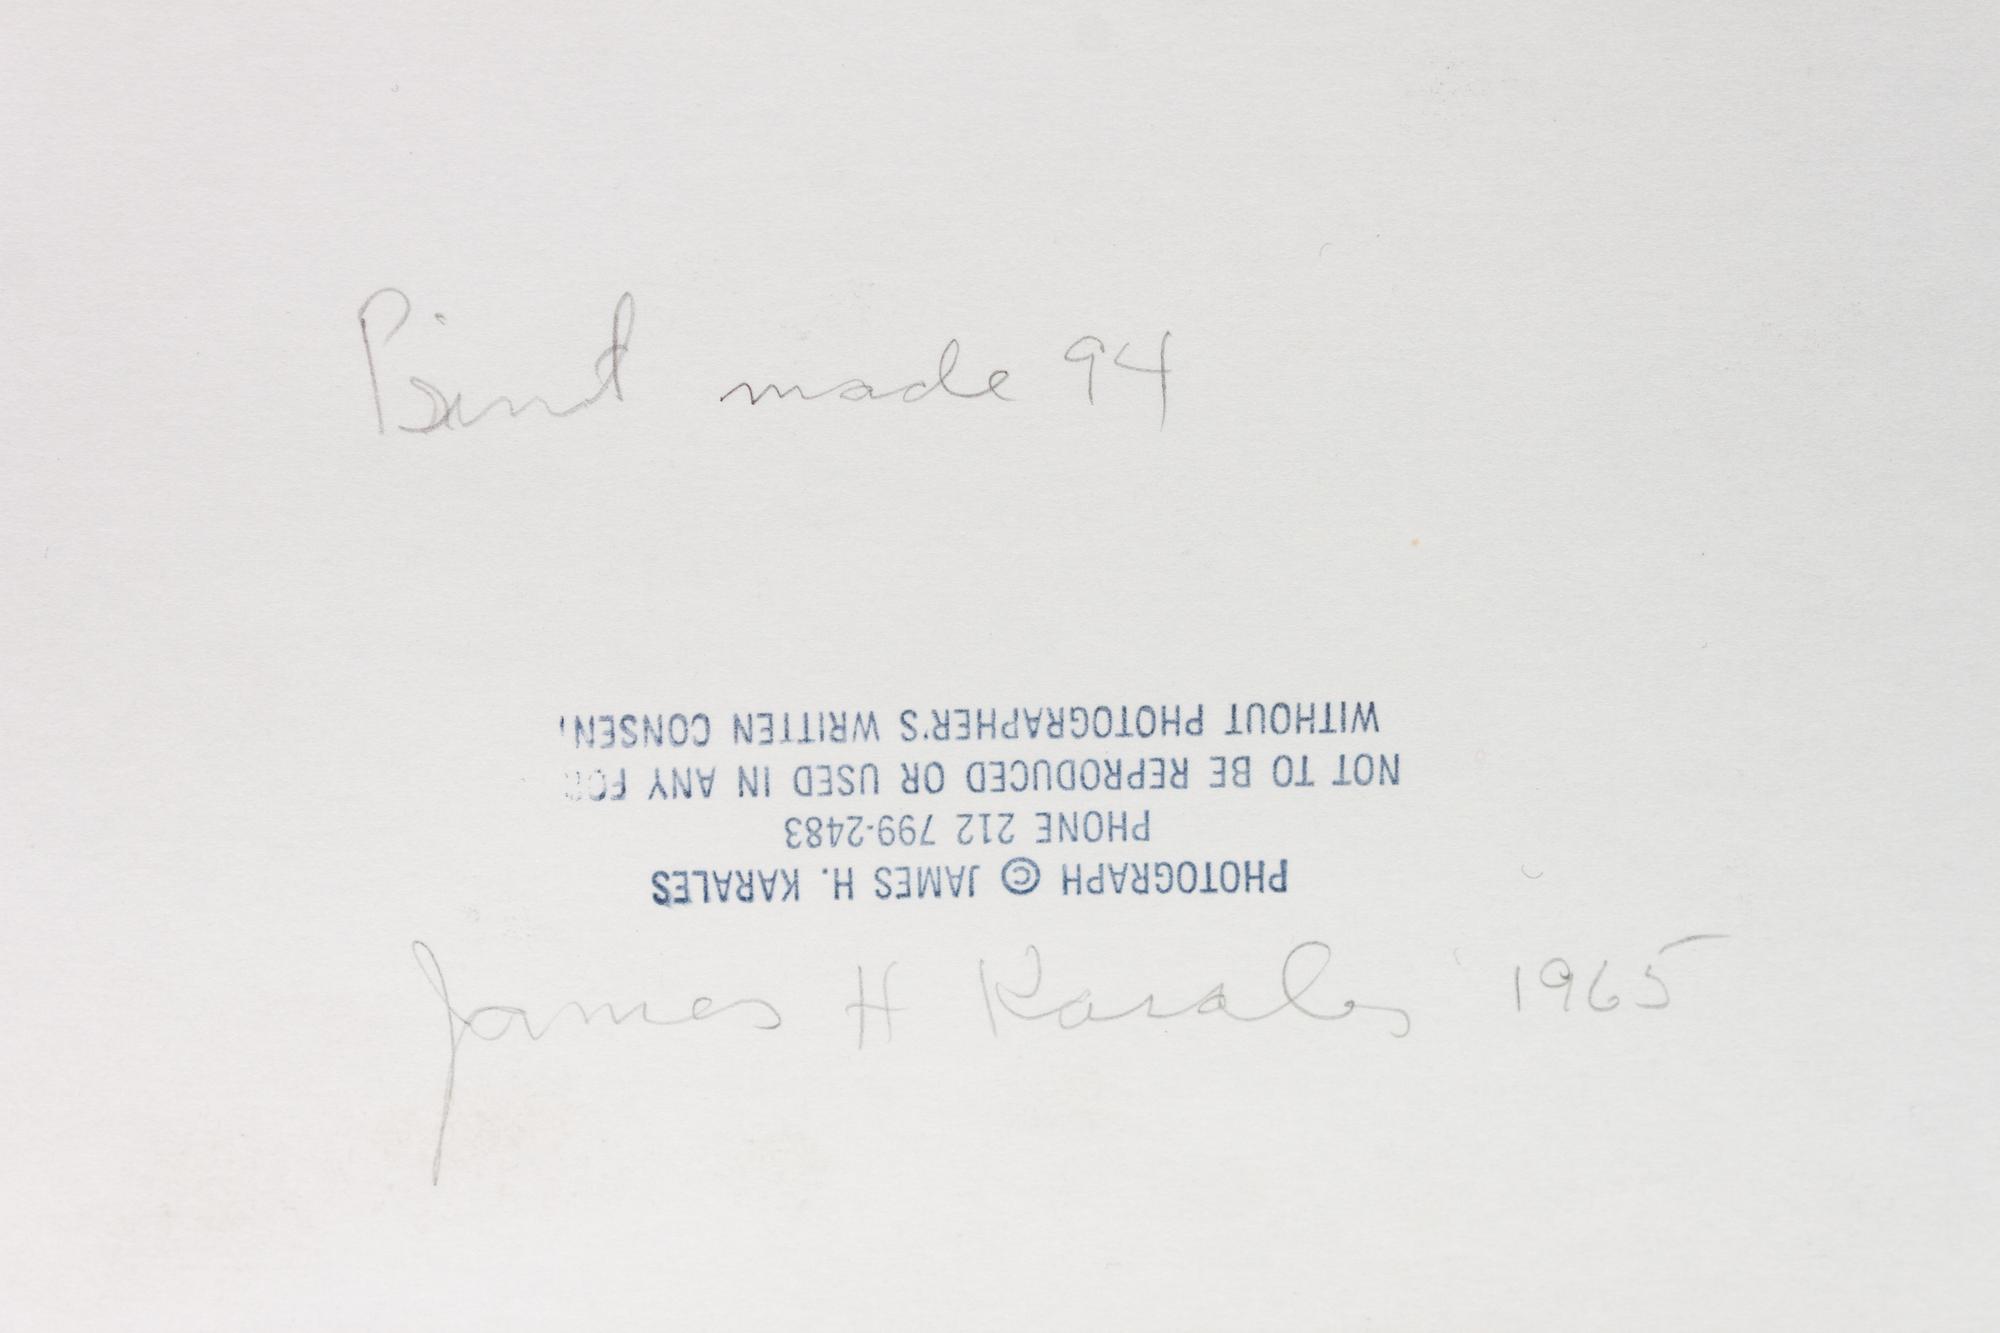 Print made 94
PHOTOGRAPH © JAMES H. KARALES
PHONE 212 799-2483
NOT TO BE REPRODUCED OR USED IN ANY FOR
WITHOUT PHOTOGRAPHER'S WRITTEN CONSENT
James H Karales 1965